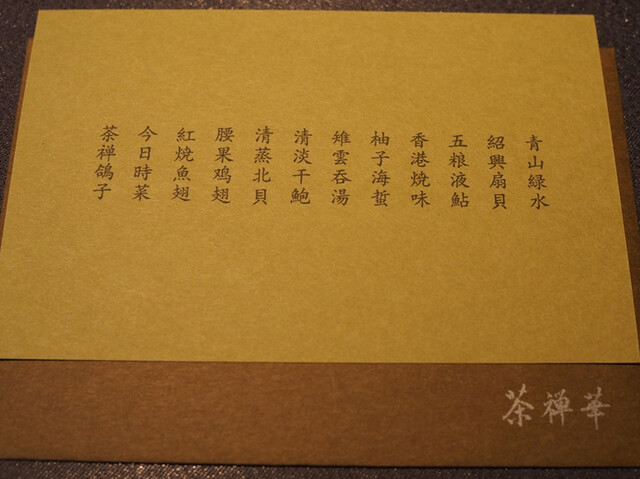 青山緑水
紹興扇貝
五粮液鮎
香港焼味
柚子海蜇
雉雲呑湯
清淡干鮑
清蒸北貝
腰果鸡翅
紅焼魚翅
今日時菜
茶禅鴿子
茶禅華